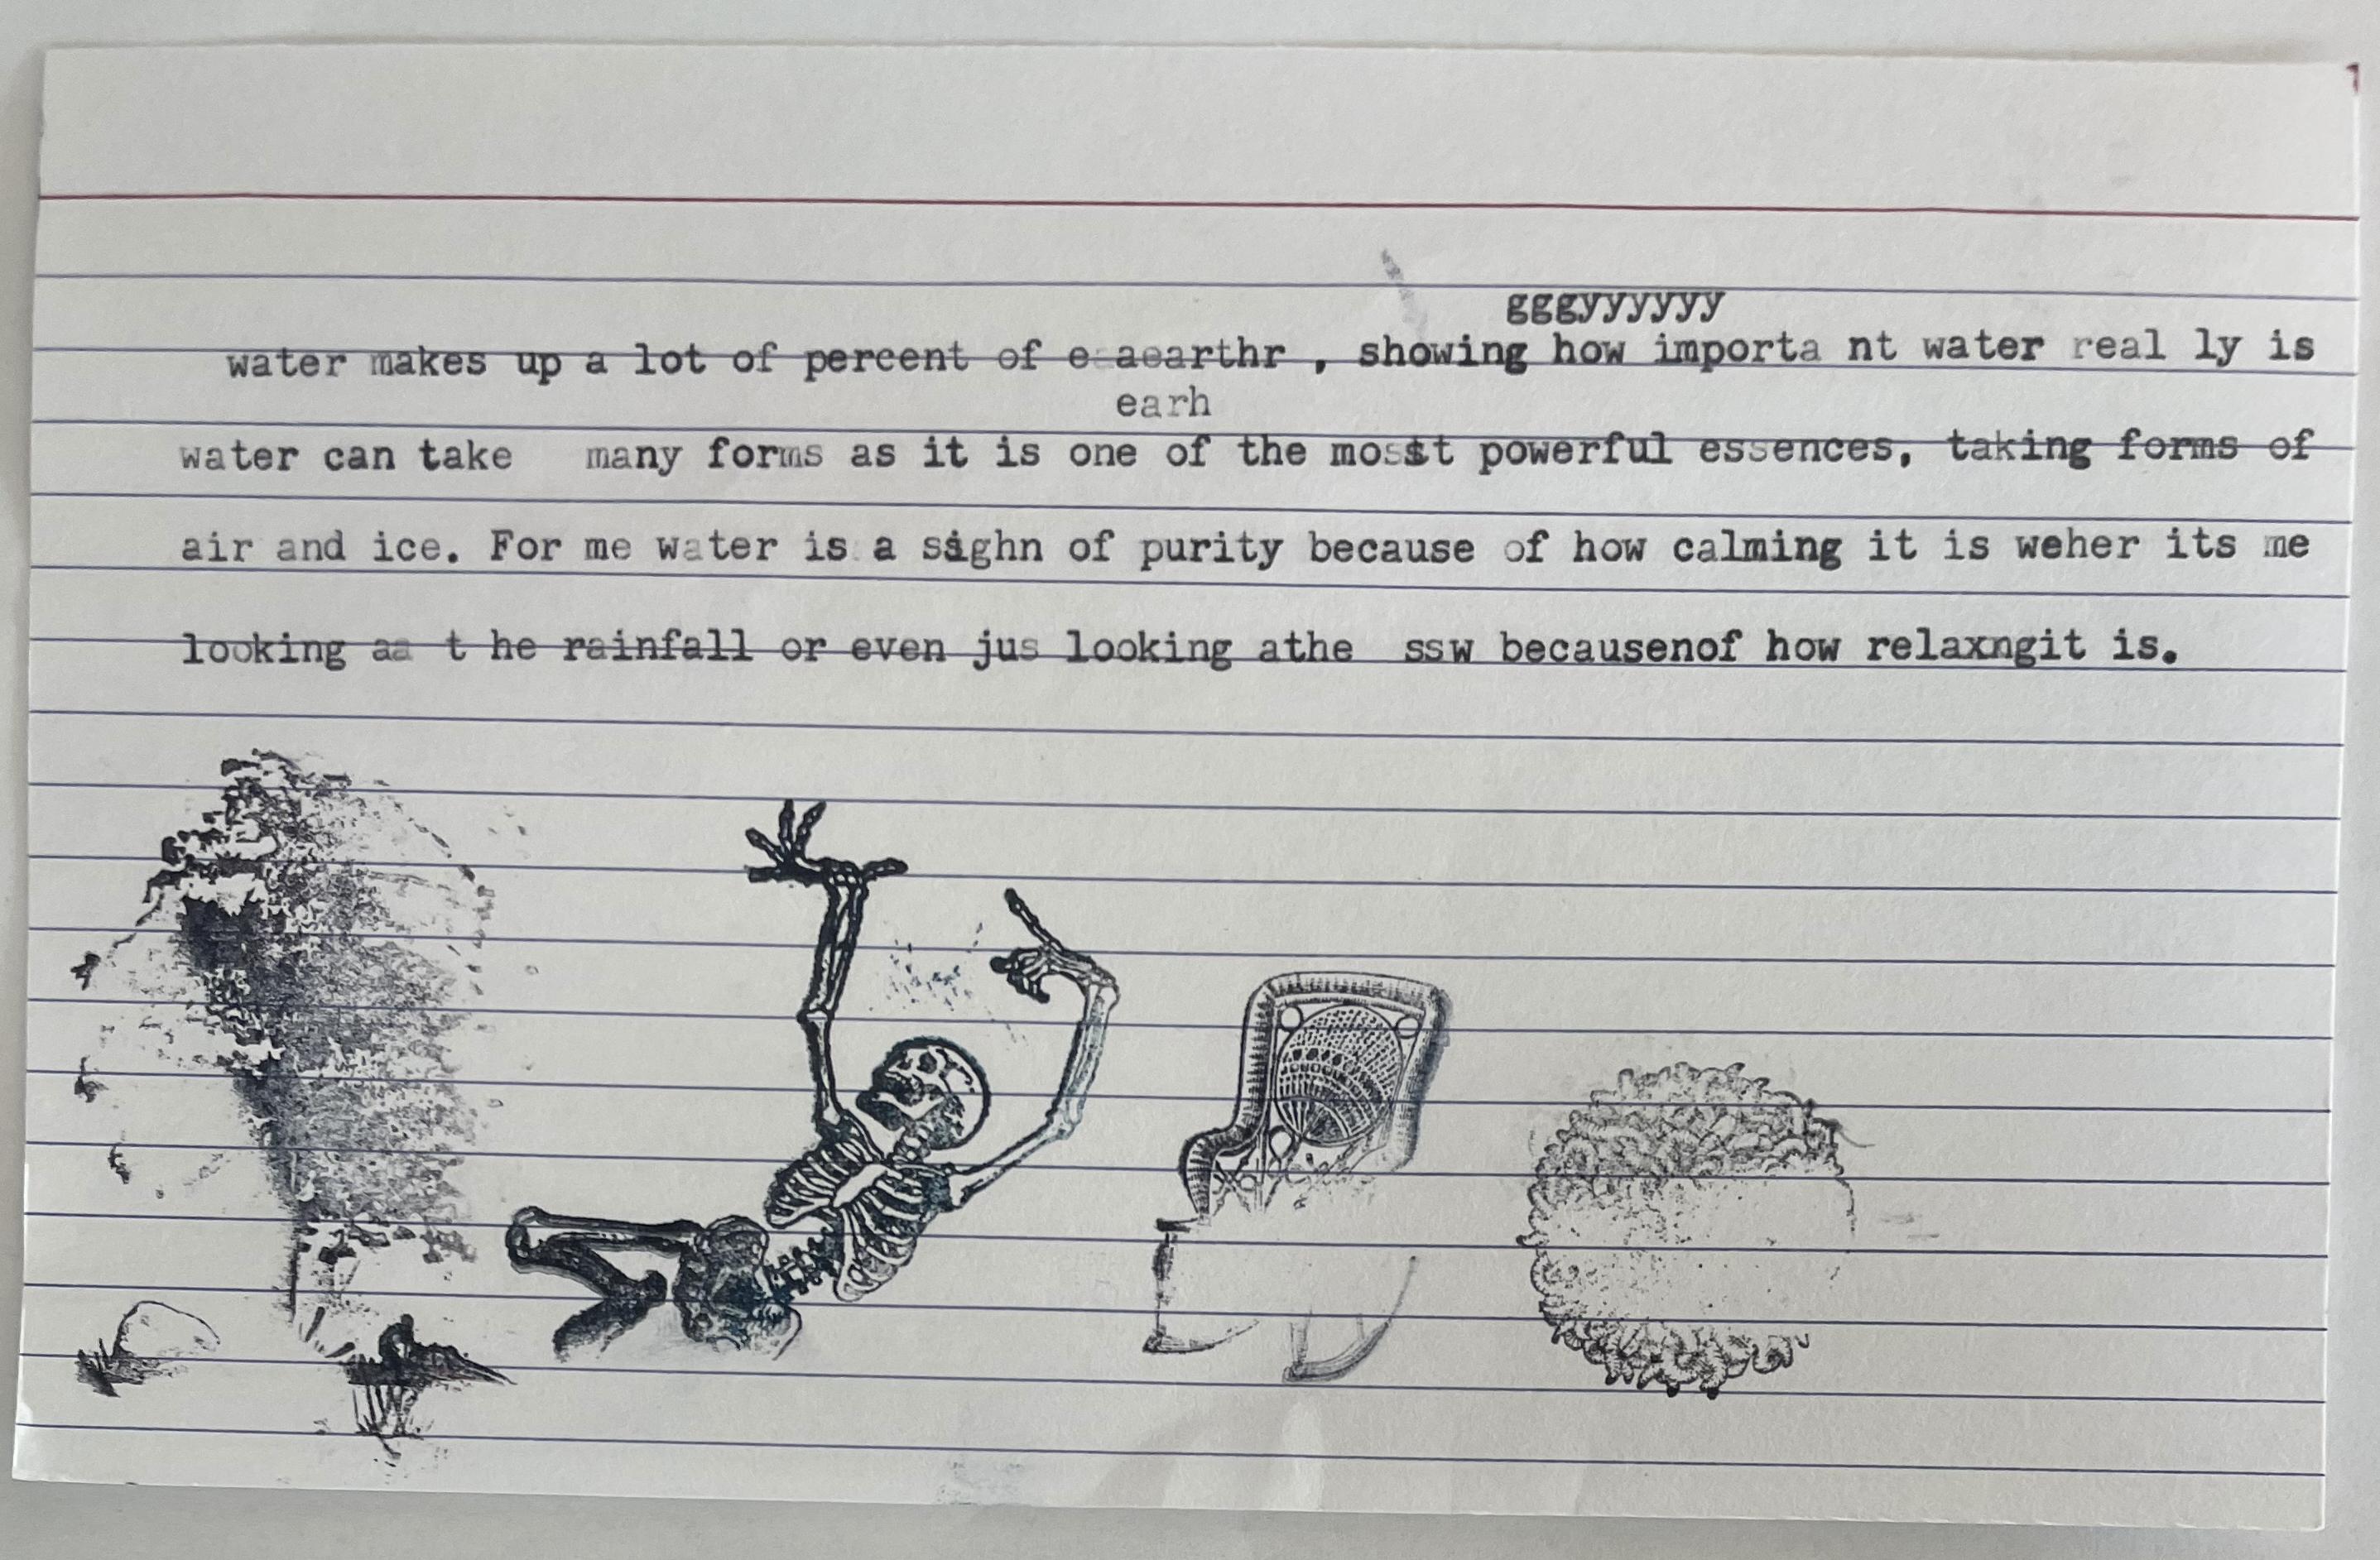 gggyyyyyy
water makes up a lot of percent of e aearthr , showing how importa nt water real ly is
earh
water can take many forms as it is one of the mosst powerful essences, taking forms of
air and ice. For me water is a sighn of purity because of how calming it is weher its me
looking aa t he rainfall or even jus looking athe ssw becausenof how relaxngit is.